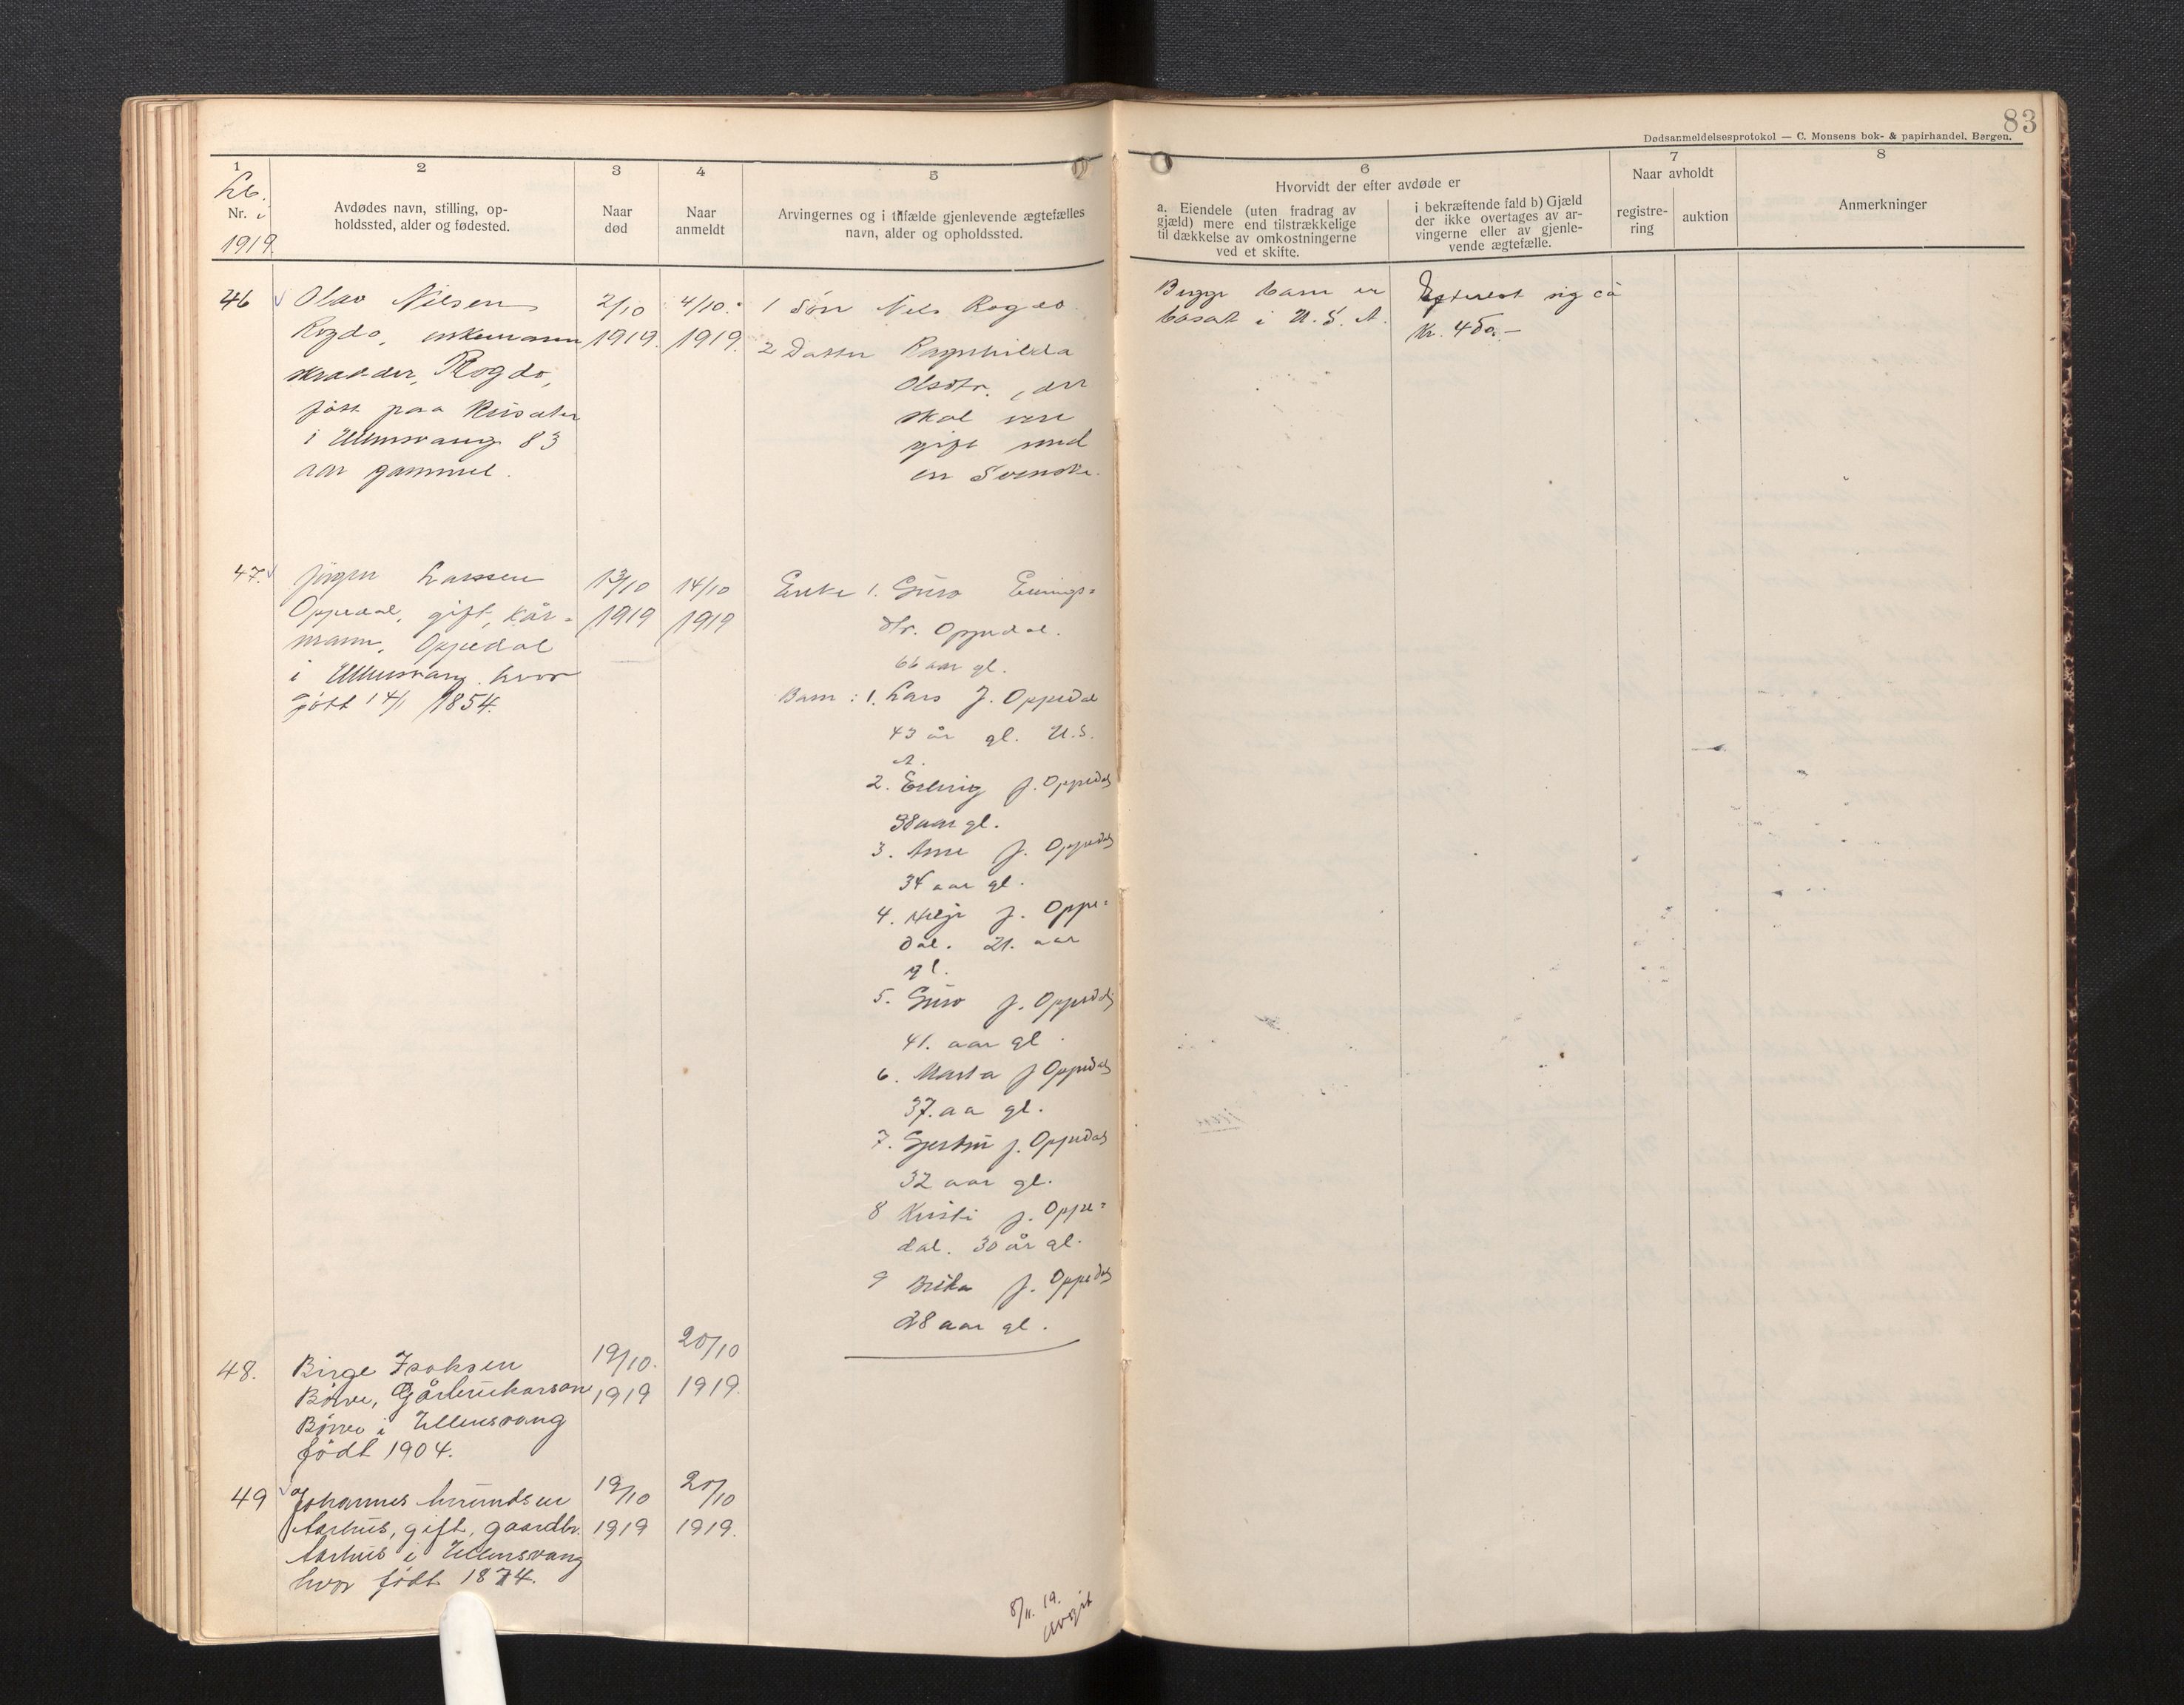 83
Dødsanmeldelsesprotokol — C. Monsens bok- & papirhandel, Bergen.
1
Lb.
Nr. i
1919.
2
Avdødes navn, stilling, op-
holdssted, alder og fødested.
3
Naar
død
4
Naar
anmeldt
5
Arvingernes og i tilfælde gjenlevende ægtefælles
navn, alder og opholdssted.
6
Hvorvidt der efter avdøde er
a. Eiendele (uten fradrag av
gjæld) mere end tilstrækkelige
til dækkelse av omkostningerne
ved et skifte.
i bekræftende fald b) Gjæld
der ikke overtages av ar-
vingerne eller av gjenle-
vende ægtefælle.
7
Naar avholdt
registre-
ring
auktion
8
Anmerkninger
46
Olav Nilsen
Rogdo, enkemann
skradder, Rogdo,
født paa
i Ullensvang 83
aar gammel.
2/10
1919.
4/10.
1919.
1 Sön Nils Rogdo.
2 Datter Ragnhilda
Olsdtr., der
skal vere
gift med
en Svenske.
Begge barn er
bosat i U.S.A.
Efterlot sig ca
Kr. 450.-
47.
Jörgen Larssen
Oppedal, gift, kår-
mann, Oppedal
i Ullensvang hvor
født 14/1 1854.
13/10
1919
14/10
1919
Enke 1. Guro
dtr. Oppedal.
66 aar gl.
Barn: 1. Lars J. Oppedal
43 år gl. U.S.
A.
2. J. Oppedal
38 aar gl.
3. J. Oppedal
34 aar gl.
4. Helje J. Oppe=
dal. 21. aar
gl.
5. Guro J. Oppedal
41. aar gl
6. Marta J Oppedal
37. aa gl.
7. J. Oppedal
32 aar gl.
8 Kristi J. Oppe=
dal. 30 år gl.
9 Brita J. Oppedal
28 aar gl.
48.
Birge Isaksen
Börve, Gårbrukarson
Börve i Ullensvang
født 1904.
19/10.
1919
20/10
1919.
49
Johannes
Aarhus, gift, gaardbr.
Aarhus i Ullensvang
hvor født 1874.
19/10
1919
20/10
1919.
8/11. 19.